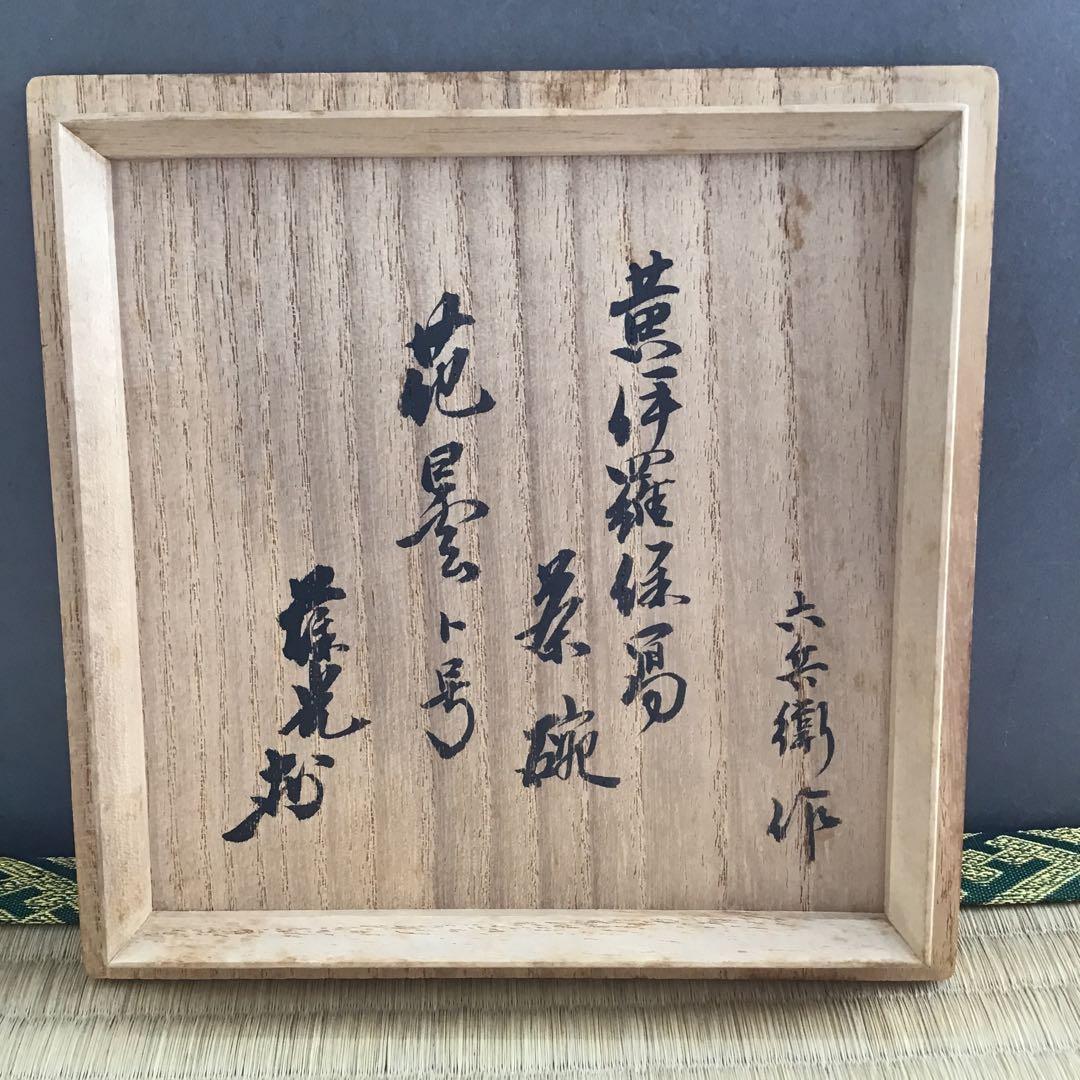 六兵衛作
黄伊羅保寫
茶碗
花曇ト号